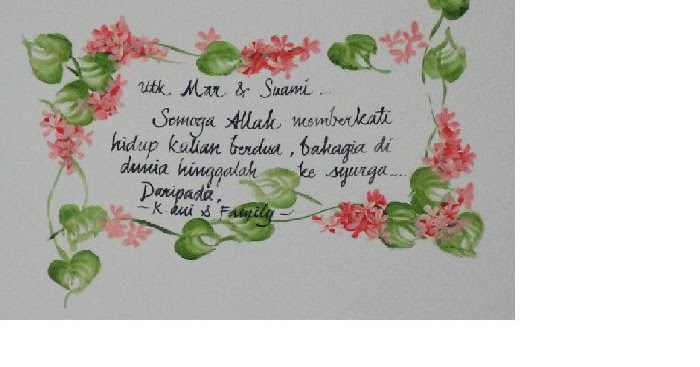 Utk. Mar & Suami ...
Semoga Allah memberkati
hidup kalian berdua, bahagia di
dunia hinggalah ke syurga....
Daripada,
- K. ani & Family -